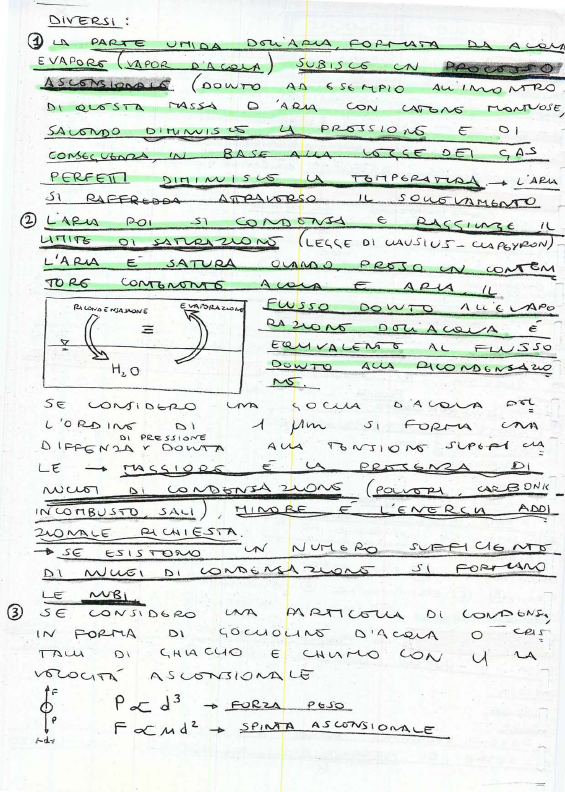 DIVERSI :
① LA PARTE UMIDA DELL'ARIA, FORMATA DA ACQUA
E VAPORE (VAPOR D'ACQUA) SUBISCE UN PROCESSO
ASCENSIONALE (DOVUTO AD ESEMPIO ALL'INCONTRO
DI QUESTA MASSA D'ARIA CON CATENE MONTUOSE,
SALENDO DIMINUISCE LA PRESSIONE E DI
CONSEGUENZA, IN BASE ALLA LEGGE DEI GAS
PERFETTI DIMINUISCE LA TEMPERATURA → L'ARIA
SI RAFFREDDA ATTRAVERSO IL SOLLEVAMENTO
② L'ARIA POI SI CONDENSA E RAGGIUNGE IL
LIMITE DI SATURAZIONE (LEGGE DI CLAUSIUS - CLAPEYRON)
L'ARIA E' SATURA QUANDO, PRESO UN CONTENI
TORE CONTENENTE ACQUA E ARIA, IL
FLUSSO DOVUTO ALL'EVAPO
RAZIONE DELL'ACQUA È
EQUIVALENTE AL FLUSSO
DOVUTO ALLA RICONDENSAZIO
NE.
RICONDENSAZIONE EVAPORAZIONE
≡
H₂O
SE CONSIDERO UNA GOCCIA D'ACQUA DEL
L'ORDINE DI 1 μm SI FORMA UNA
DI PRESSIONE
DIFFENZA DOVUTA ALLA TENSIONE SUPERFICIA
LE → MAGGIORE E' LA PRESENZA DI
NUCLEI DI CONDENSAZIONE (POLVERI, CARBONE
INCOMBUSTO, SALI), MINORE È L'ENERGIA ADDI
ZIONALE RICHIESTA.
→ SE ESISTONO UN NUMERO SUFFICIENTE
DI NUCLEI DI CONDENSAZIONE SI FORMANO
LE NUBI
③ SE CONSIDERO UNA PARTICELLA DI CONDENSA,
IN FORMA DI GOCCIOLINE D'ACQUA O CRIS
TALLI DI GHIACCIO E CHIAMO CON U LA
VELOCITÁ ASCENSIONALE
F
P
d
P ∝ d³ → FORZA PESO
F ∝ μd² → SPINTA ASCENSIONALE